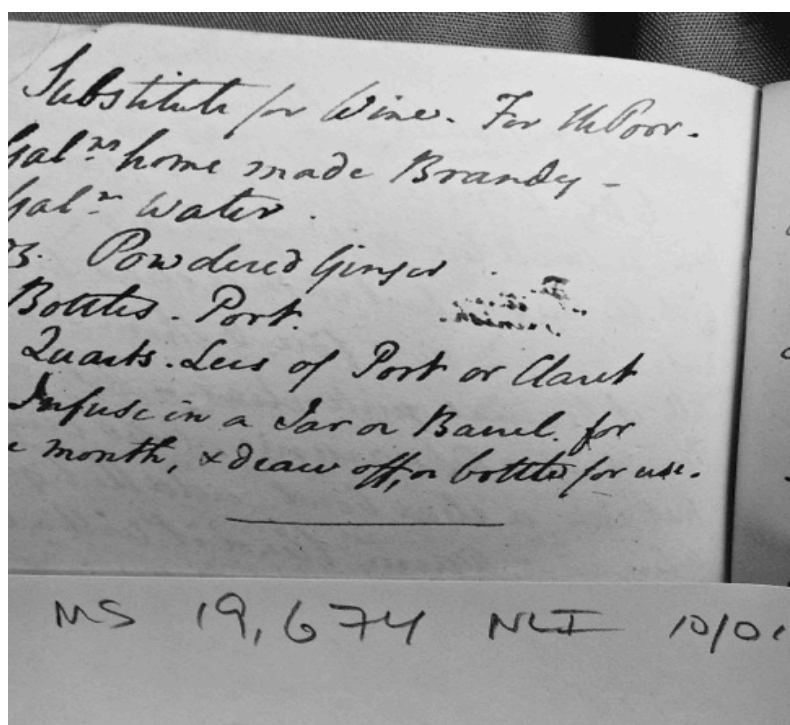 Substitute for Wine. For the Poor.
Gal.ns home made Brandy -
Gal.n Water.
oz. Powdered Ginger
Bottles. Port.
Quarts. Lees of Port or Claret
Infuse in a Jar or Barrel. for
month, & draw off, or bottle for use.
MS 19,674 NLI 10/01